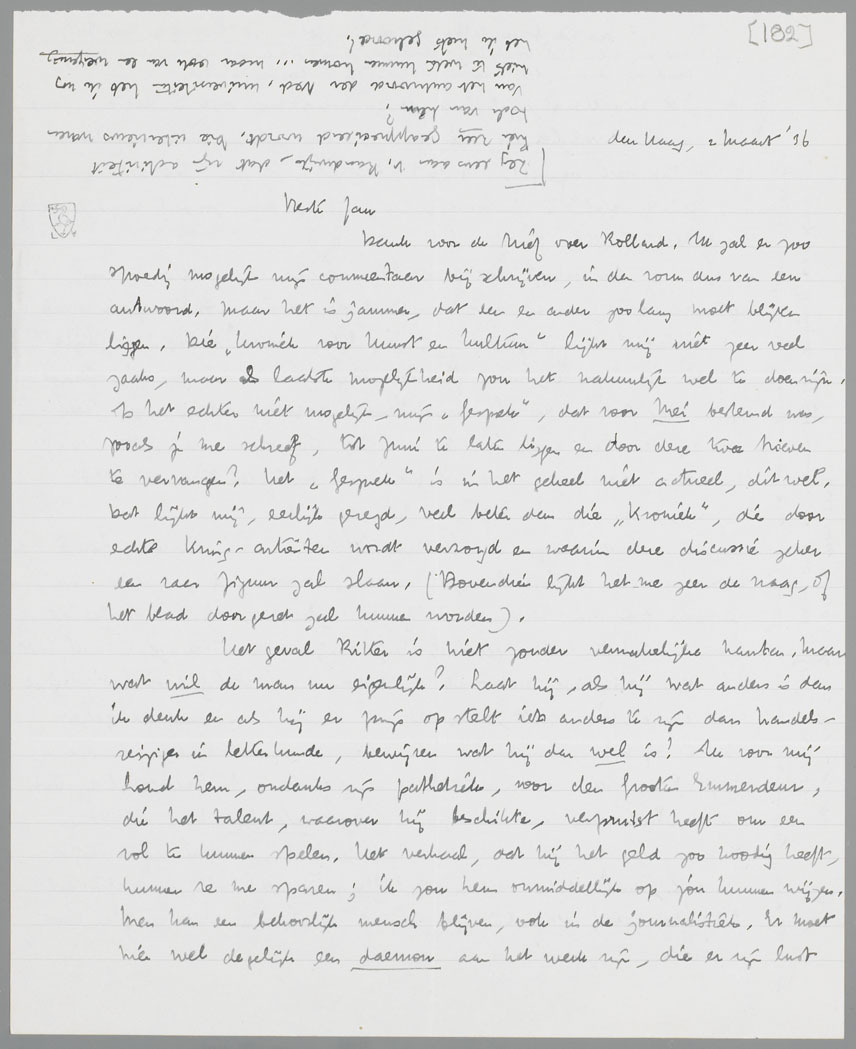 [182]
Zeg eens aan v. Kranendonk, dat zijn activiteit
hier zeer geapprecieerd wordt. Die interviews waren
toch van hem?
Van het antwoord der Ned. universiteiten heb ik nog
niets te weten kunnen komen ... maar ook van een weigering
heb ik niets gehoord!
den Haag, 2 Maart '36
Beste Jan
Dank voor de brief over Rolland. Ik zal er zoo
spoedig mogelijk mijn commentaar bij schrijven, in den vorm dus van een
antwoord. Maar het is jammer, dat een en ander zoo lang moet blijven
liggen. Die „Kroniek voor Kunst en Kultuur" lijkt mij niét zeer veel
zaaks, maar als laatste mogelijkheid zou het natuurlijk wel te doen zijn.
Is het echter niét mogelijk, mijn „Gesprek", dat voor Mei bestemd was,
zooals je me schreef, tot Juni te laten liggen en door deze twee brieven
te vervangen? Het „Gesprek" is in het geheel niét actueel, dit wel.
Dat lijkt mij, eerlijk gezegd, veel beter dan die „Kroniek", die door
echte kring-artiesten wordt verzorgd en waarin deze discussie zeker
een raar figuur zal slaan. (Bovendien lijkt het me zeer de vraag, of
het blad doorgezet zal kunnen worden).
Het geval Ritter is niet zonder vermakelijke kanten. Maar
wat wil de man nu eigenlijk? Laat hij, als hij wat anders is dan
ik denk en als hij er prijs op stelt iets anders te zijn dan handels-
reiziger in letterkunde, bewijzen wat hij dan wel is! Ik voor mij
houd hem, ondanks zijn pathetiek, voor den grooten Emmerdeur,
die het talent, waarover hij beschikte, verprutst heeft om een
rol te kunnen spelen. Het verhaal, dat hij het geld zoo noodig heeft,
kunnen ze me sparen; ik zou hem onmiddellijk op jóu kunnen wijzen.
Men kan een behoorlijk mensch blijven, ook in de journalistiek. Er moet
hier wel degelijk een daemon aan het werk zijn, die er zijn lust